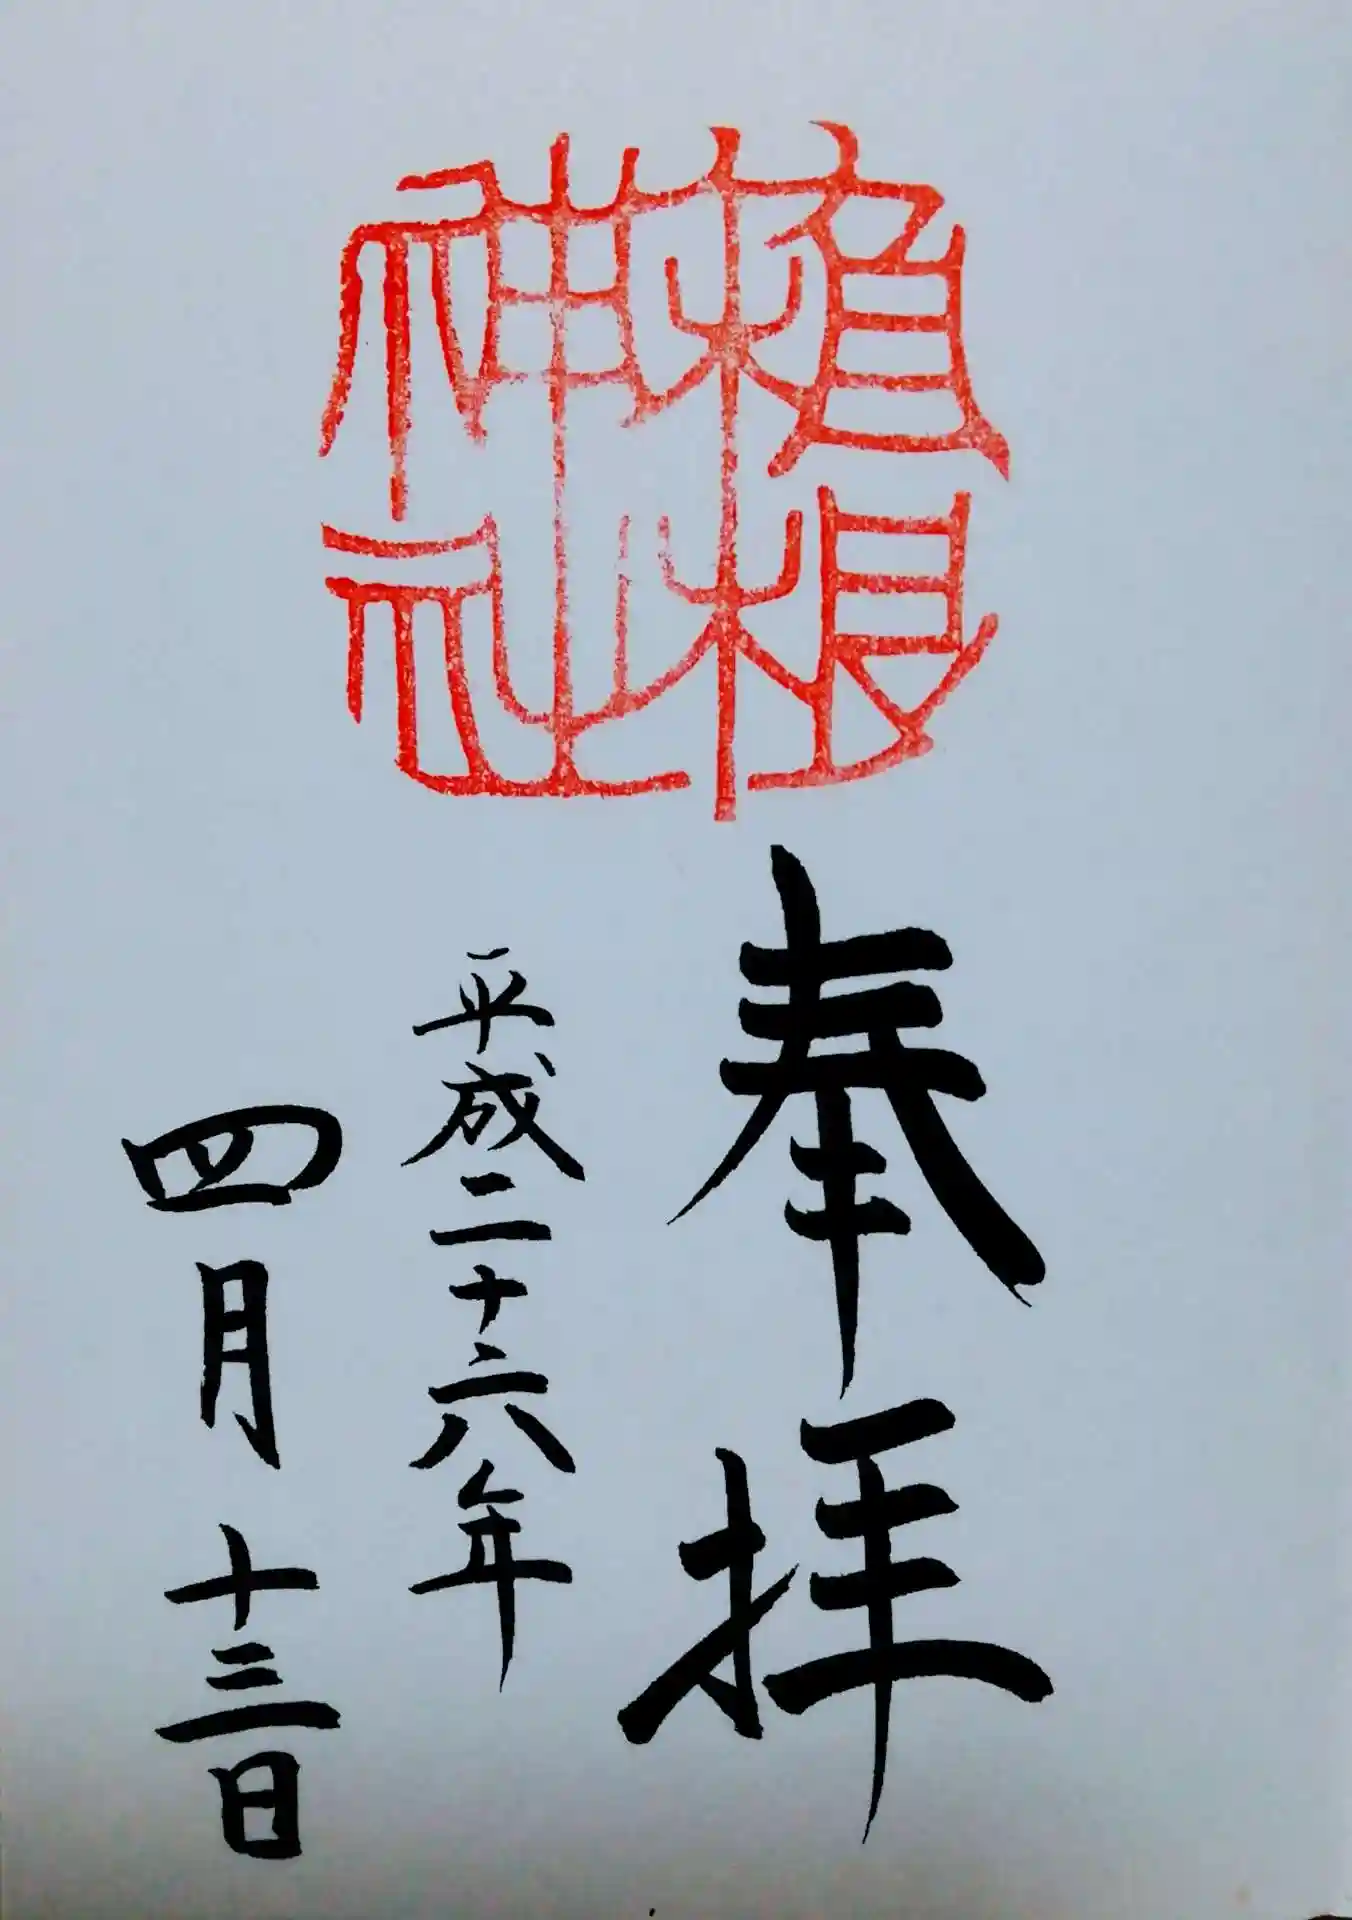 根
神社
奉拝
平成二十六年
四月十三日